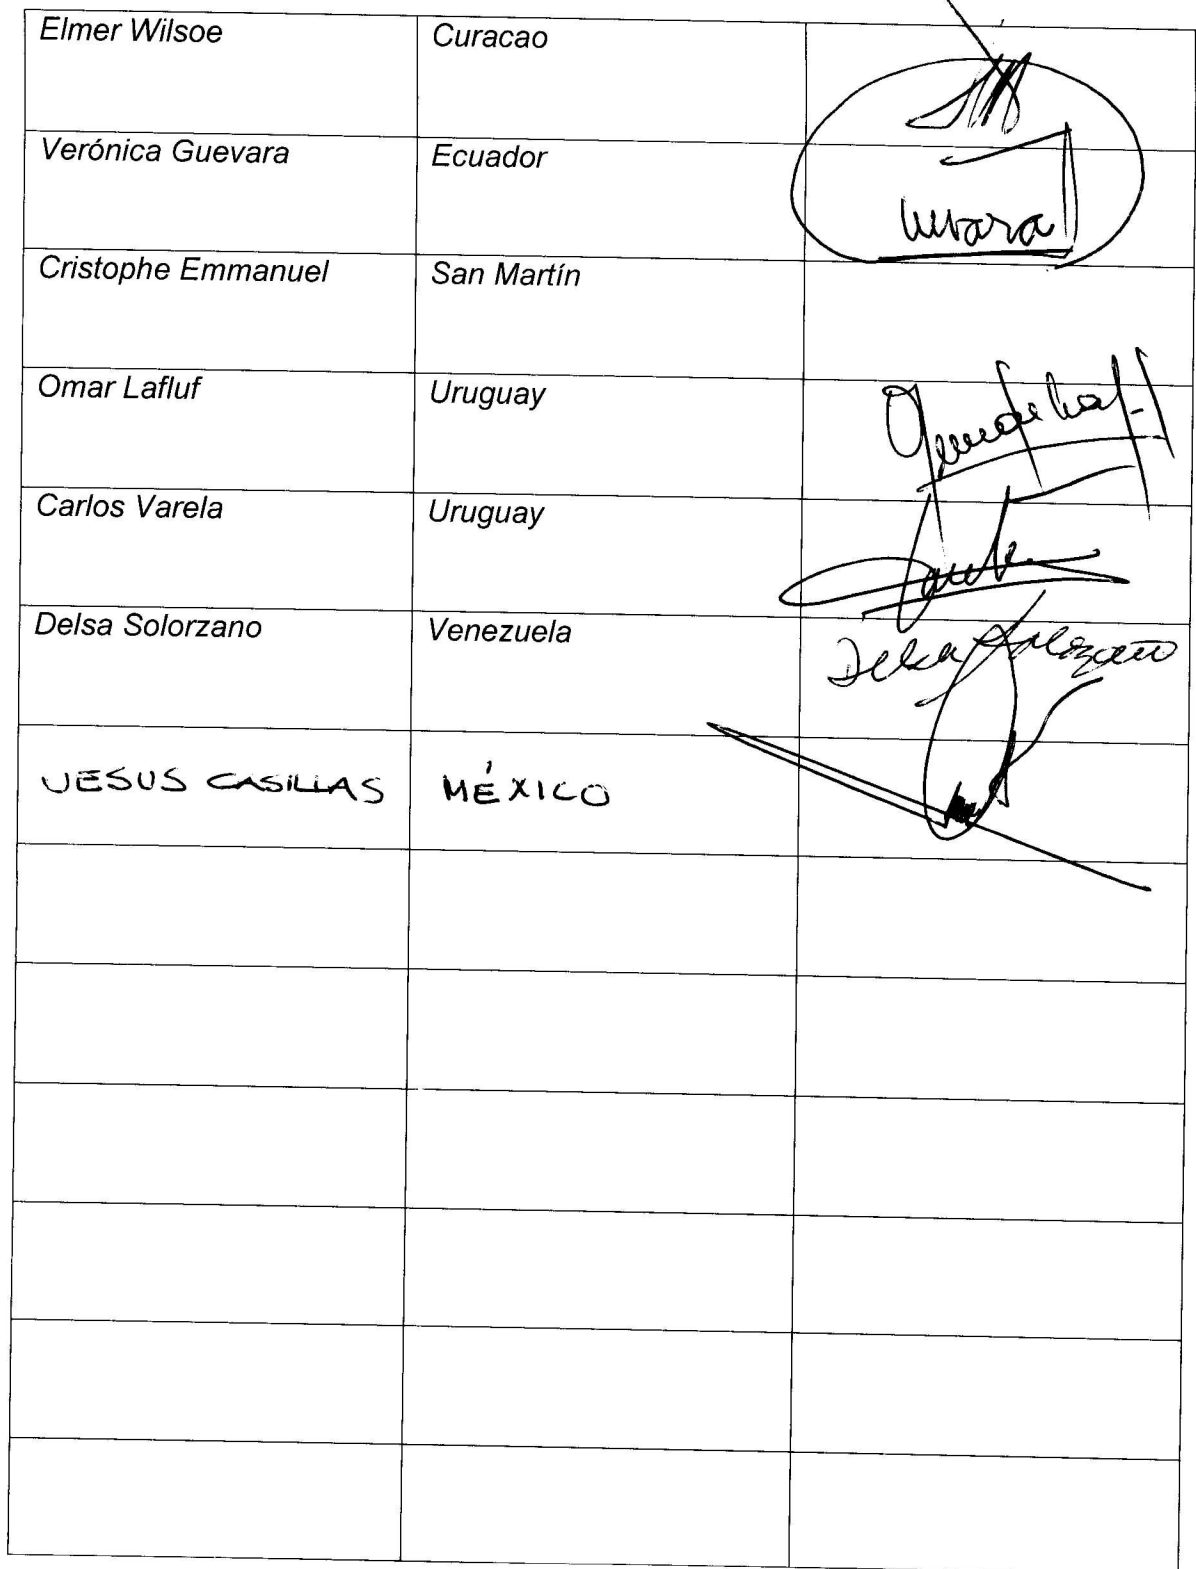 Elmer Wilsoe Curacao
Verónica Guevara Ecuador
Cristophe Emmanuel San Martín
Omar Lafluf Uruguay
Carlos Varela Uruguay
Delsa Solorzano Venezuela Delsa Solorzano
JESUS CASILLAS MÉXICO